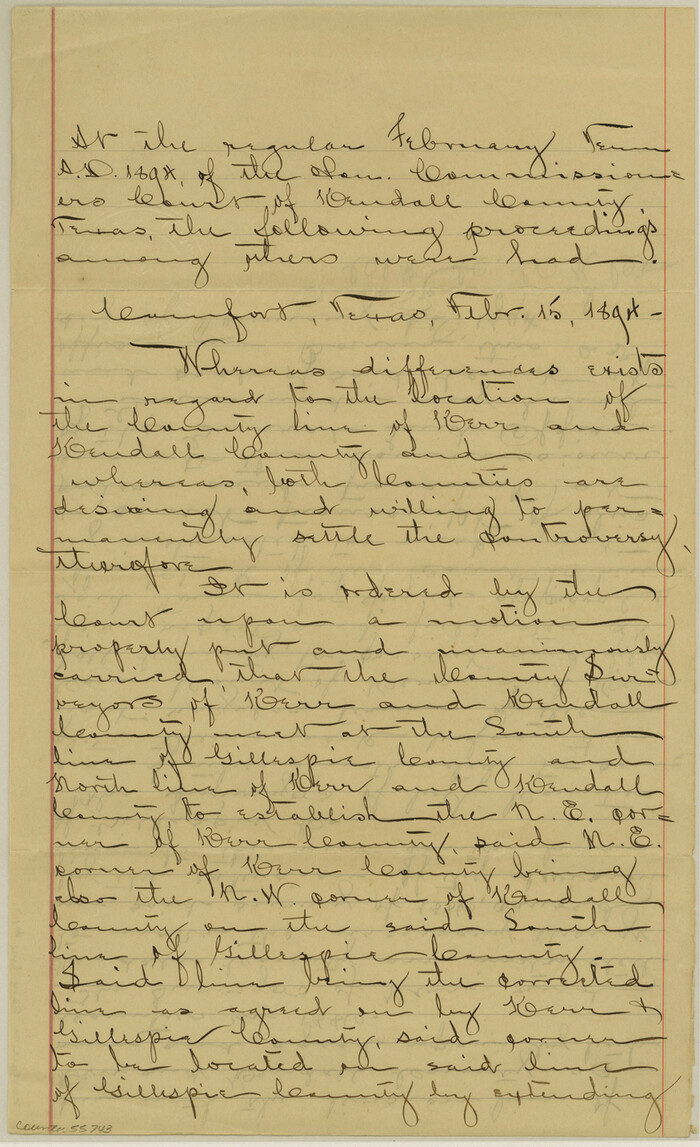 At the regular February Term
A.D. 1894, of the Hon. Commission=
ers Court of Kendall County
Texas, the following proceedings
among others were had.
Comfort, Texas, Febr. 15, 1894-
Whereas differences exists
in regard to the location of
the County line of Kerr and
Kendall County and
whereas, both Counties are
desiring and willing to per=
manently settle the controversy,
therefore
It is ordered by the
Court upon a motion
properly put and unanimously
carried, that the County Sur=
veyors of Kerr and Kendall
County meet at the South
line of Gillespie County and
North line of Kerr and Kendall
County to establish the N.E. cor=
ner of Kerr County, said N.E.
corner of Kerr County being
also the N.W. corner of Kendall
County on the said South
line of Gillespie County.
Said line being the corrected
line as agreed on by Kerr &
Gillespie County, said corner
to be located on said line
of Gillespie County by extending
Counter 55743